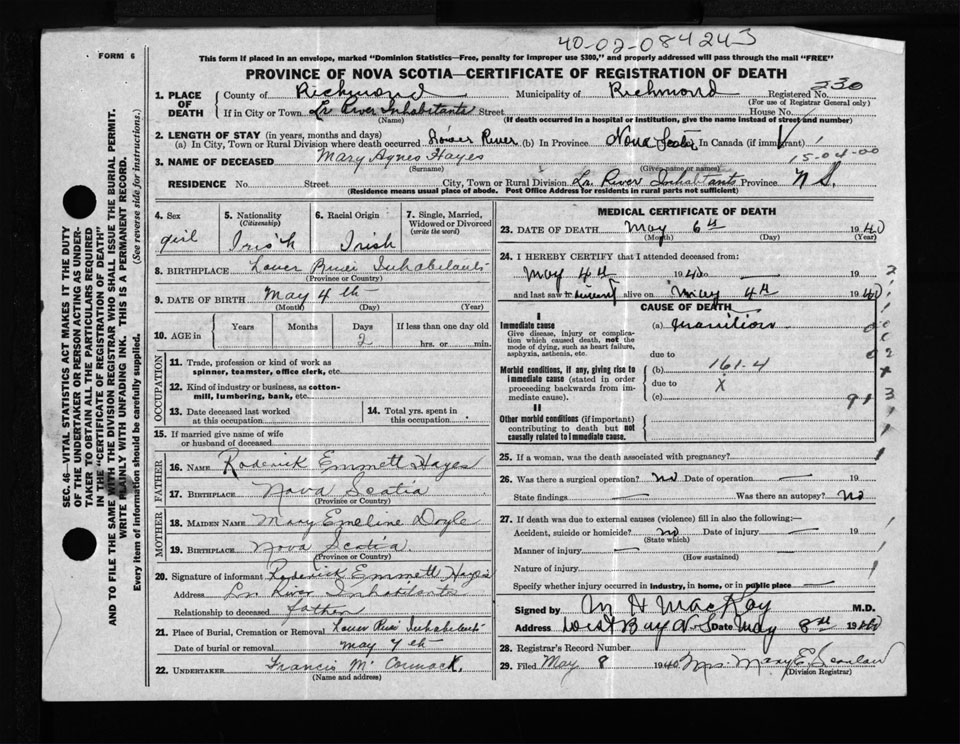 40-02-084243
FORM 6
This form if placed in an envelope, marked "Dominion Statistics—Free, penalty for improper use $300," and properly addressed will pass through the mail "FREE"
PROVINCE OF NOVA SCOTIA—CERTIFICATE OF REGISTRATION OF DEATH
1. PLACE OF DEATH County of Richmond Municipality of Richmond Registered No. 230
(For use of Registrar General only)
If in City or Town Lr River Inhabitants Street House No.
(Name) (If death occurred in a hospital or institution, give the name instead of street and number)
2. LENGTH OF STAY (in years, months and days)
(a) In City, Town or Rural Division where death occurred Lower River (b) In Province Nova Scotia In Canada (if immigrant)
15-04-00
3. NAME OF DECEASED Mary Agnes Hayes
(Surname) (Given name or names)
RESIDENCE No. Street City, Town or Rural Division Lr. River Inhabitants Province N S.
(Residence means usual place of abode. Post Office Address for residents in rural parts not sufficient)
4. Sex girl
5. Nationality (Citizenship) Irish
6. Racial Origin Irish
7. Single, Married, Widowed or Divorced (write the word)
8. BIRTHPLACE Lower River Inhabitants
(Province or Country)
9. DATE OF BIRTH May 4th
(Month) (Day) (Year)
10. AGE in Years Months Days 2 If less than one day old hrs. or min.
OCCUPATION
11. Trade, profession or kind of work as spinner, teamster, office clerk, etc.
12. Kind of industry or business, as cotton-mill, lumbering, bank, etc.
13. Date deceased last worked at this occupation
14. Total yrs. spent in this occupation
15. If married give name of wife or husband of deceased
FATHER
16. NAME Roderick Emmett Hayes
17. BIRTHPLACE Nova Scotia
(Province or Country)
MOTHER
18. MAIDEN NAME Mary Emeline Doyle
19. BIRTHPLACE Nova Scotia
(Province or Country)
20. Signature of informant Roderick Emmett Hayes
Address Lr. River Inhabitants
Relationship to deceased father
21. Place of Burial, Cremation or Removal Lower River Inhabitants
Date of burial or removal May 7th
22. UNDERTAKER Francis McCormack.
(Name and address)
MEDICAL CERTIFICATE OF DEATH
23. DATE OF DEATH May 6th 1940
(Month) (Day) (Year)
24. I HEREBY CERTIFY that I attended deceased from:
May 4th 1940 19
and last saw h alive on May 4th 1940
CAUSE OF DEATH
I
Immediate cause
Give disease, injury or complication which caused death, not the mode of dying, such as heart failure, asphyxia, asthenia, etc.
(a)
due to
Morbid conditions, if any, giving rise to immediate cause (stated in order proceeding backwards from immediate cause)
(b) 161.4
due to X
(c)
II
Other morbid conditions (if important) contributing to death but not causally related to immediate cause.
25. If a woman, was the death associated with pregnancy?
26. Was there a surgical operation? No Date of operation — 19
State findings — Was there an autopsy? No
27. If death was due to external causes (violence) fill in also the following:—
Accident, suicide or homicide? no Date of injury — 19
(State which)
Manner of injury —
(How sustained)
Nature of injury
Specify whether injury occurred in industry, in home, or in public place —
Signed by M H MacKay M.D.
Address West Bay N.S. Date May 8th 1940
28. Registrar's Record Number
29. Filed May 8 1940 Mrs. Mary E. Scanlan
(Division Registrar)
SEC. 46—VITAL STATISTICS ACT MAKES IT THE DUTY
OF THE UNDERTAKER OR PERSON ACTING AS UNDER-
TAKER TO OBTAIN ALL THE PARTICULARS REQUIRED
IN THE "CERTIFICATE OF REGISTRATION OF DEATH"
AND TO FILE THE SAME WITH THE DIVISION REGISTRAR WHO SHALL ISSUE THE BURIAL PERMIT.
WRITE PLAINLY WITH UNFADING INK. THIS IS A PERMANENT RECORD.
Every item of information should be carefully supplied. (See reverse side for instructions.)